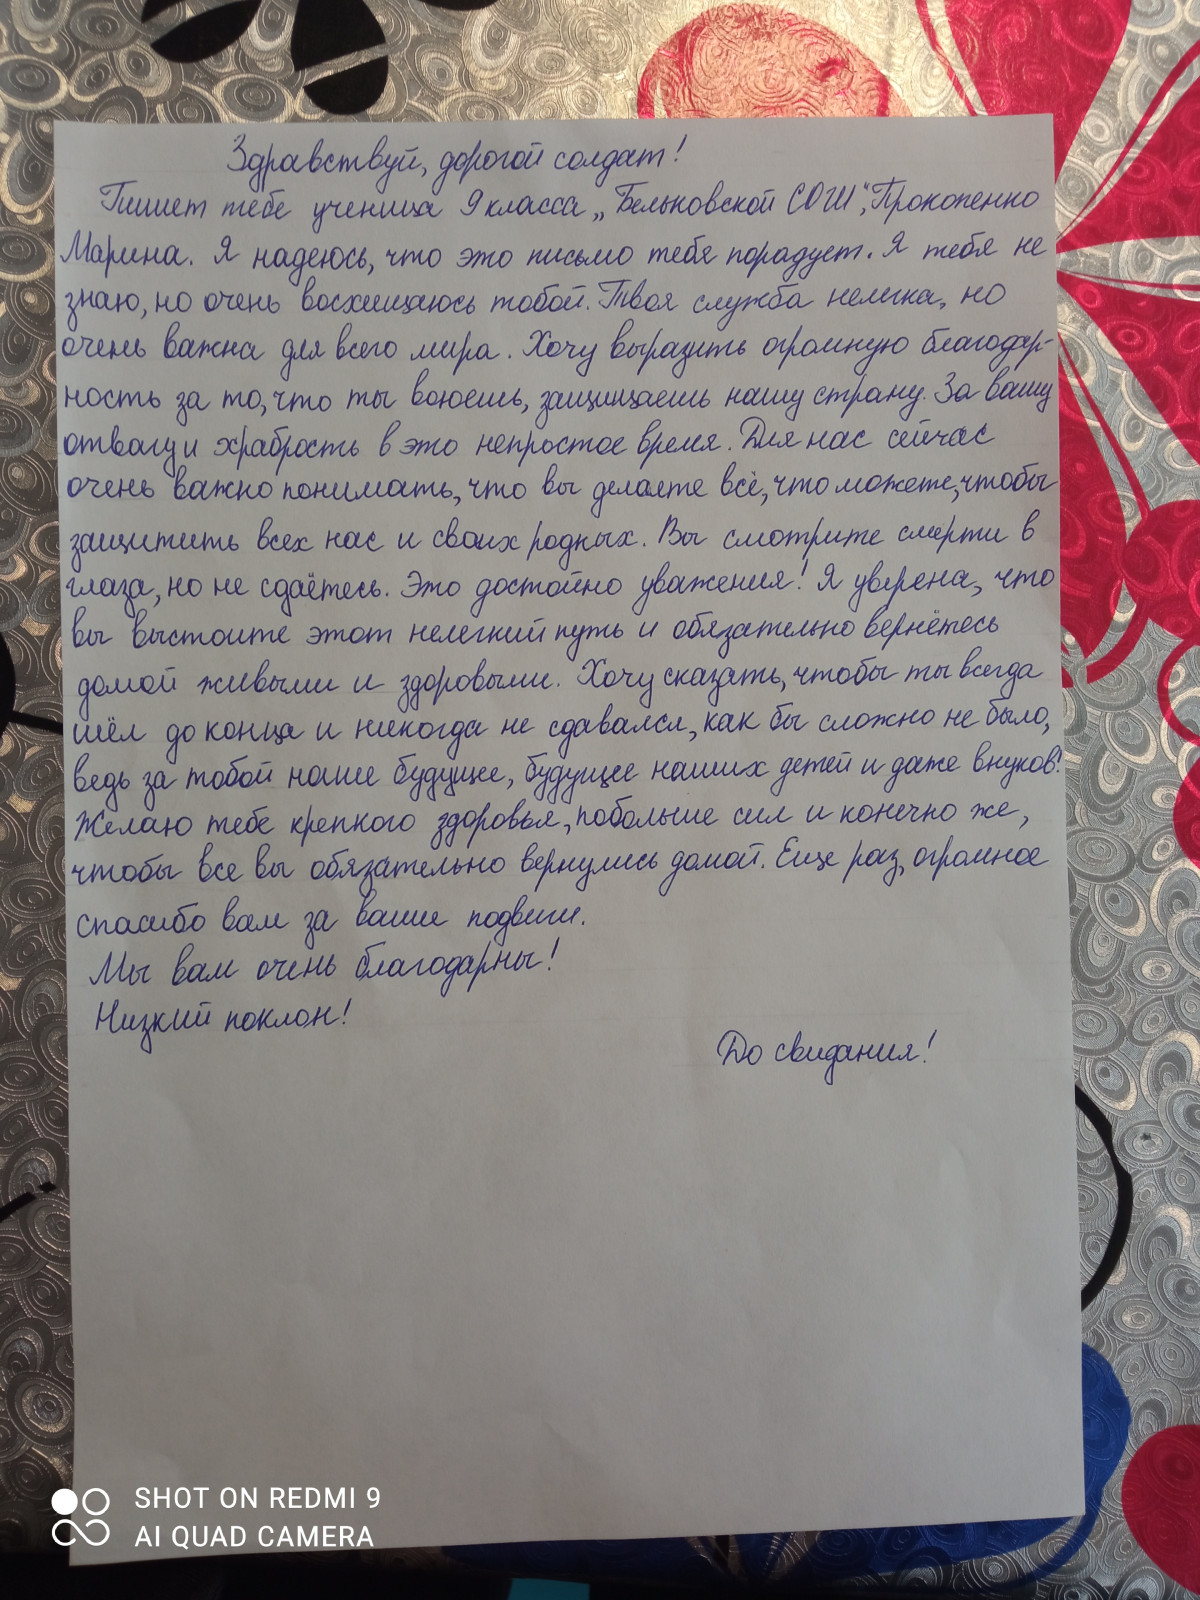 Здравствуй, дорогой солдат!
Пишет тебе ученица 9 класса „Бельковской СОШ", Прокопенко
Марина. Я надеюсь, что это письмо тебя порадует. Я тебя не
знаю, но очень восхищаюсь тобой. Твоя служба нелегка, но
очень важна для всего мира. Хочу выразить огромную благодар-
ность за то, что ты воюешь, защищаешь нашу страну. За вашу
отвагу и храбрость в это непростое время. Для нас сейчас
очень важно понимать, что вы делаете всё, что можете, чтобы
защитить всех нас и своих родных. Вы смотрите смерти в
глаза, но не сдаётесь. Это достойно уважения! Я уверена, что
вы выстоите этот нелегкий путь и обязательно вернётесь
домой живыми и здоровыми. Хочу сказать, чтобы ты всегда
шёл до конца и никогда не сдавался, как бы сложно не было,
ведь за тобой наше будущее, будущее наших детей и даже внуков!
Желаю тебе крепкого здоровья, побольше сил и конечно же,
чтобы все вы обязательно вернулись домой. Еще раз, огромное
спасибо вам за ваши подвиги.
Мы вам очень благодарны!
Низкий поклон!
До свидания!
SHOT ON REDMI 9
AI QUAD CAMERA